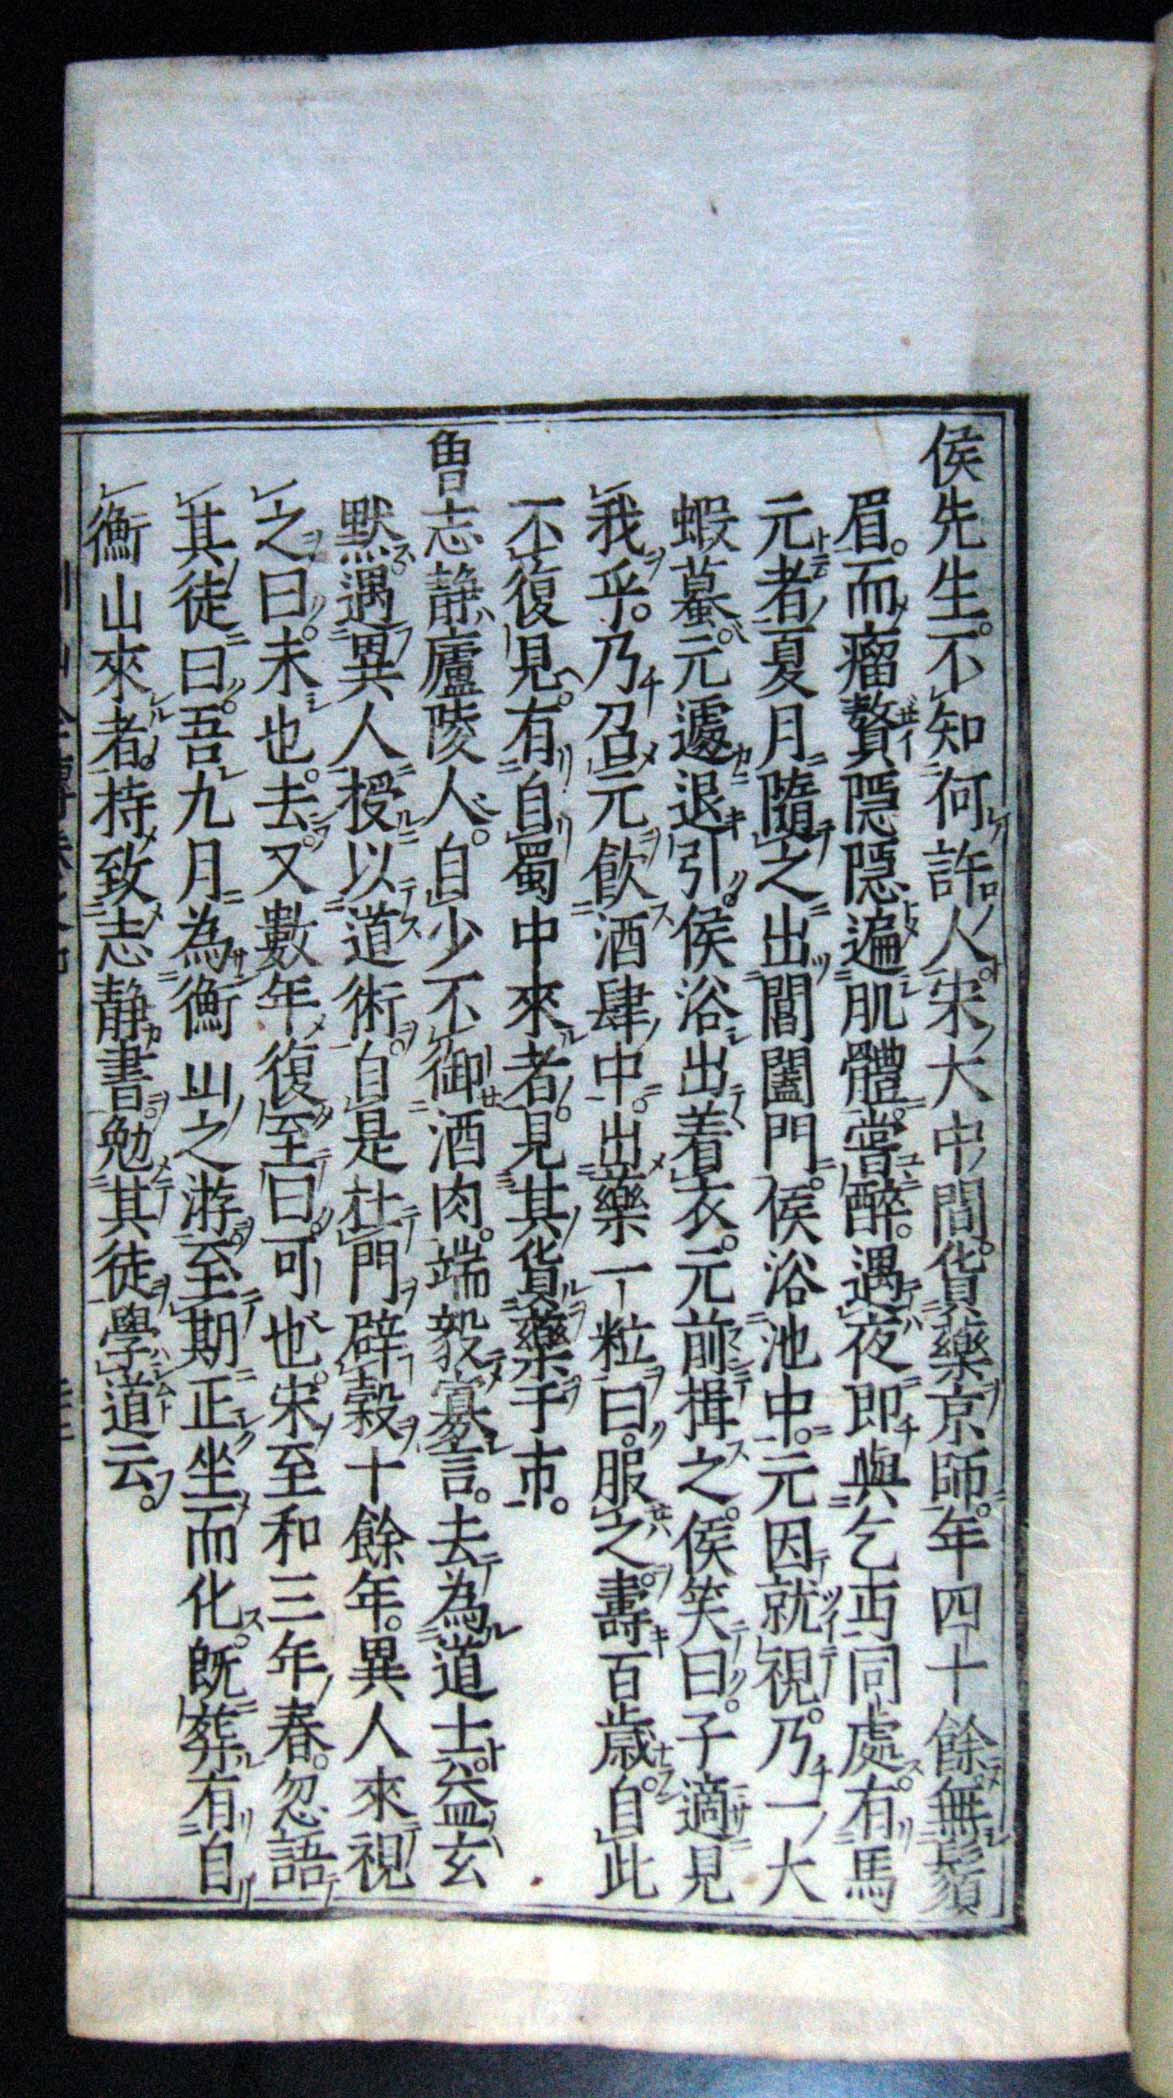 侯先生。不知何許人。宋大中間。貨藥京師。年四十餘。無鬚
眉。而瘤贅隱隱遍肌體。嘗醉。遇夜即與乞丐同處。有馬
元者。夏月隨之出閶闔門。侯浴池中。元因就視。乃一大
蝦蟇。元遽退引。侯浴出着衣。元前揖之。侯笑曰。子適見
我乎。乃召元飲酒肆中。出藥一粒曰。服之。壽百歲。自此
不復見。有自蜀中來者。見其貨藥于市。
魯志静廬陵人。自少不御酒肉。端毅寡言。去為道士。益玄
默。遇異人授以道術。自是杜門辟穀十餘年。異人來視
之曰。未也。去。又數年復至曰。可也。宋至和三年春。忽語
其徒曰。吾九月為衡山之游。至期正坐而化。既葬。有自
衡山來者。持致志静書。勉其徒學道云。